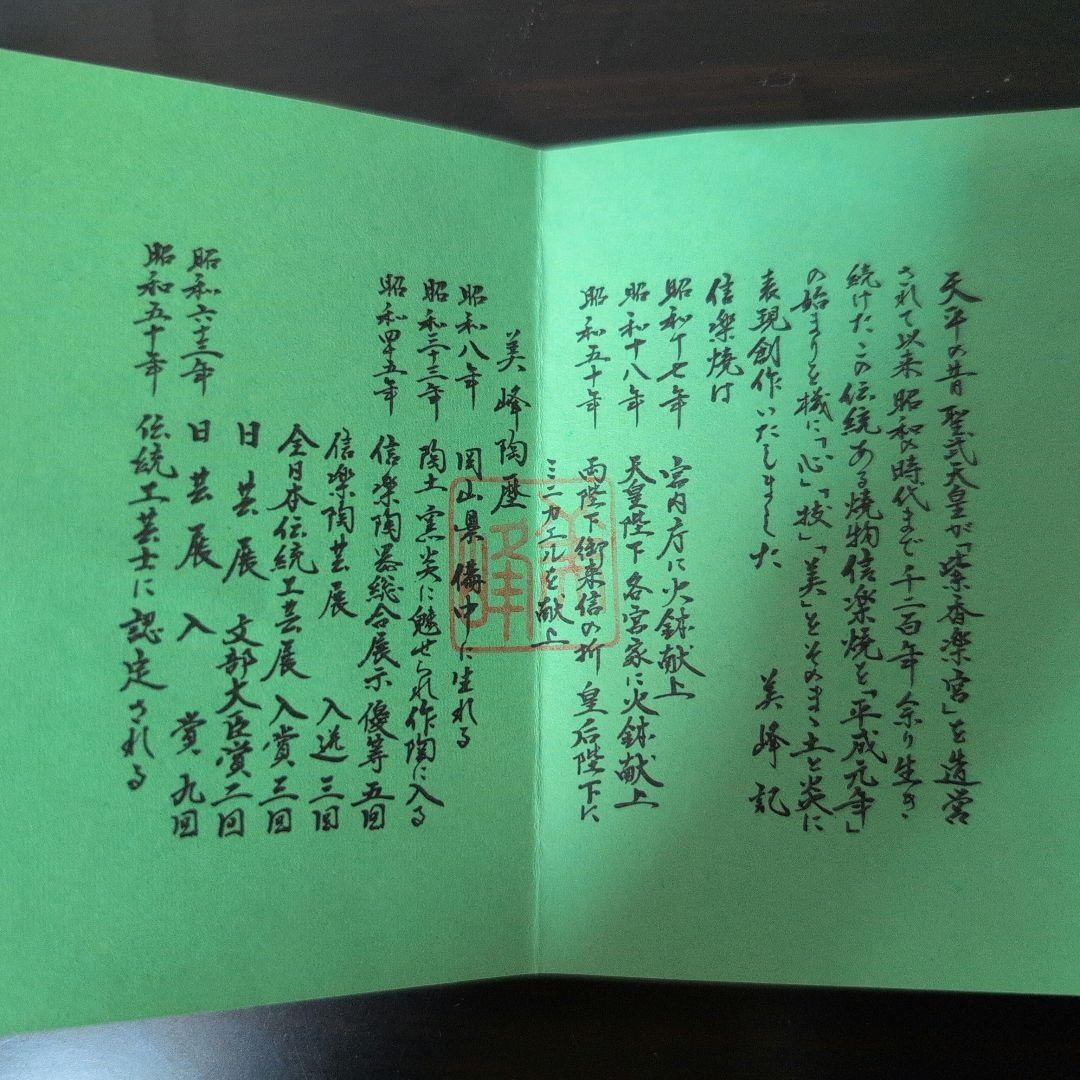 天平の昔聖武天皇が「紫香楽宮」を造営
されて以来昭和時代まで千二百年余り生き
続けたこの伝統ある焼物信楽焼を「平成元年」
の始まりを機に「心」「技」「美」をそのまゝ土と炎に
表現創作いたしました 美峰記
信楽焼は
昭和十七年 宮内庁に火鉢献上
昭和十八年 天皇陛下各宮家に火鉢献上
昭和五十年 両陛下御来信の折皇后陛下に
ミニカエルを献上
美峰陶歴
昭和八年 岡山県備中に生れる
昭和三十三年 陶土窯炎に魅せられ作陶に入る
昭和四十五年 信楽陶器総合展示優等五回
信楽陶芸展 入選三回
全日本伝統工芸展入賞三回
日芸展 文部大臣賞二回
昭和六十三年 日芸展入賞九回
昭和五十年 伝統工芸士に認定される
美峰